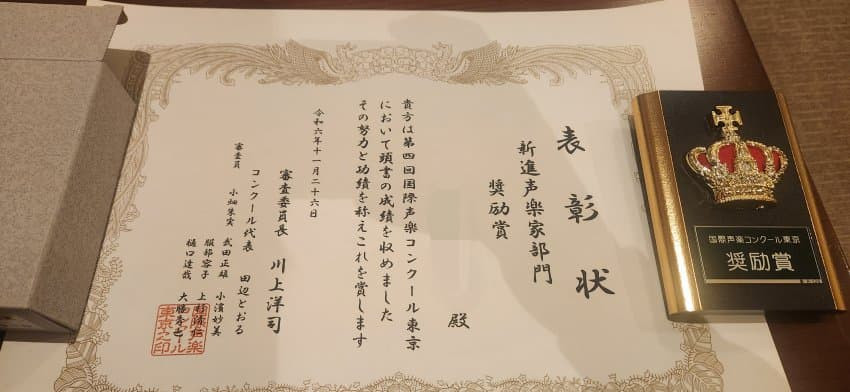 表彰状
新進声楽家部門
奨励賞
殿
貴方は第四回国際声楽コンクール東京
において頭書の成績を収めました
その努力と功績を称えこれを賞します
令和六年十一月二十六日
審査委員長 川上洋司
コンクール代表 田辺とおる
審査員 小畑朱実
武田正雄 小濱妙美
服部容子
樋口達哉
国際声楽コンクール東京
奨励賞